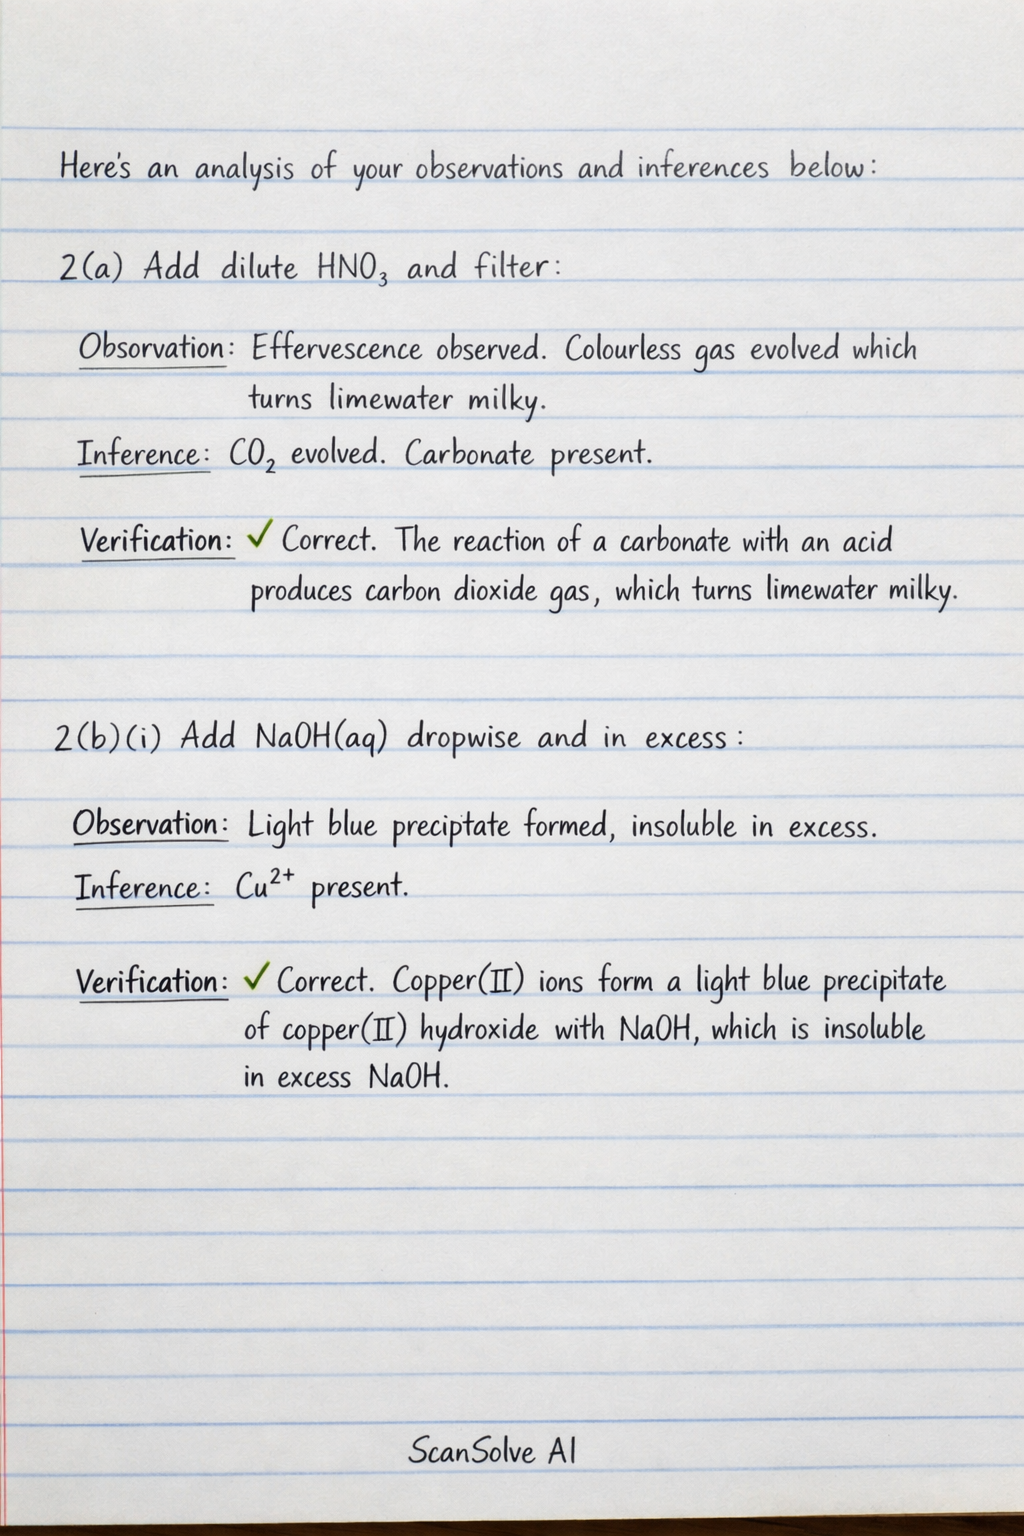 Here's an analysis of your observations and inferences below:
2(a) Add dilute HNO₃ and filter:
Obsorvation: Effervescence observed. Colourless gas evolved which
turns limewater milky.
Inference: CO₂ evolved. Carbonate present.
Verification: ✓ Correct. The reaction of a carbonate with an acid
produces carbon dioxide gas, which turns limewater milky.
2(b)(i) Add NaOH(aq) dropwise and in excess:
Observation: Light blue preciptate formed, insoluble in excess.
Inference: Cu²⁺ present.
Verification: ✓ Correct. Copper(II) ions form a light blue precipitate
of copper(II) hydroxide with NaOH, which is insoluble
in excess NaOH.
ScanSolve AI